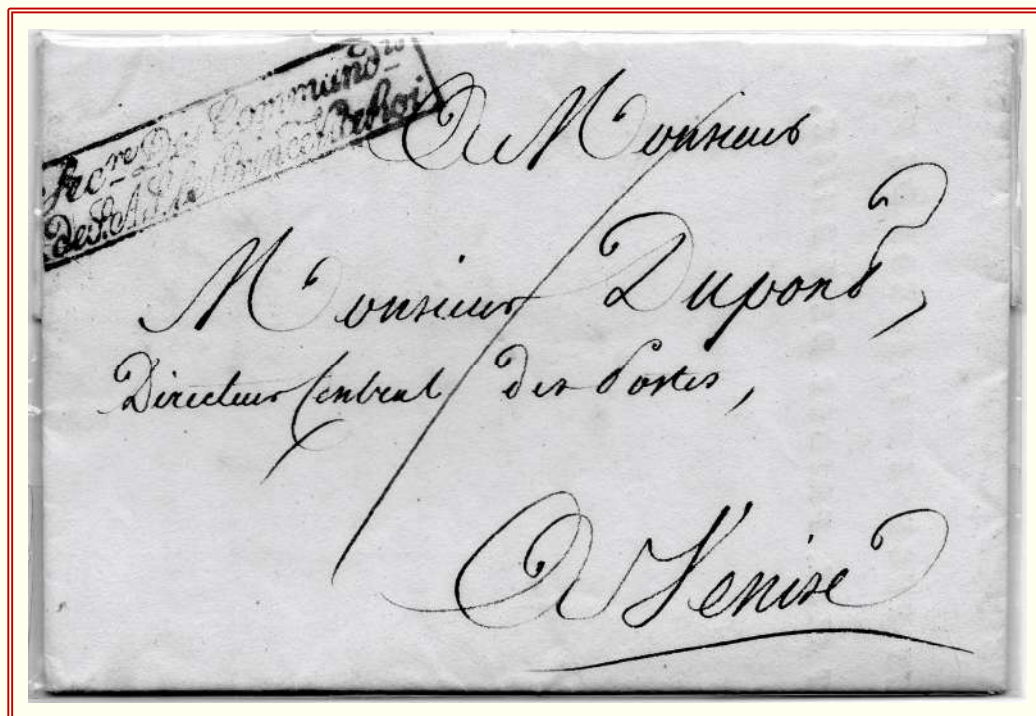 Secre. Des Command.re
de S.A.I. le Prince Vice Roi
A Monsieur
Monsieur Dupond,
Directeur Central des Postes,
A Venise